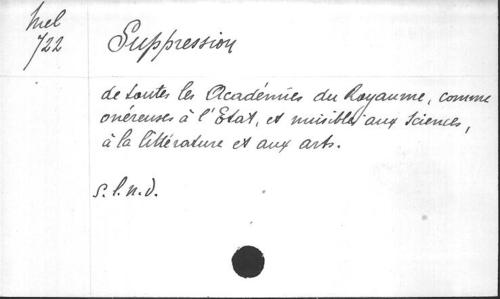 Mel
722
Suppression
de toutes les Académies du Royaume, comme
onéreuses à l'Etat, et nuisibles aux sciences,
à la littérature et aux arts.
s.l.n.d.